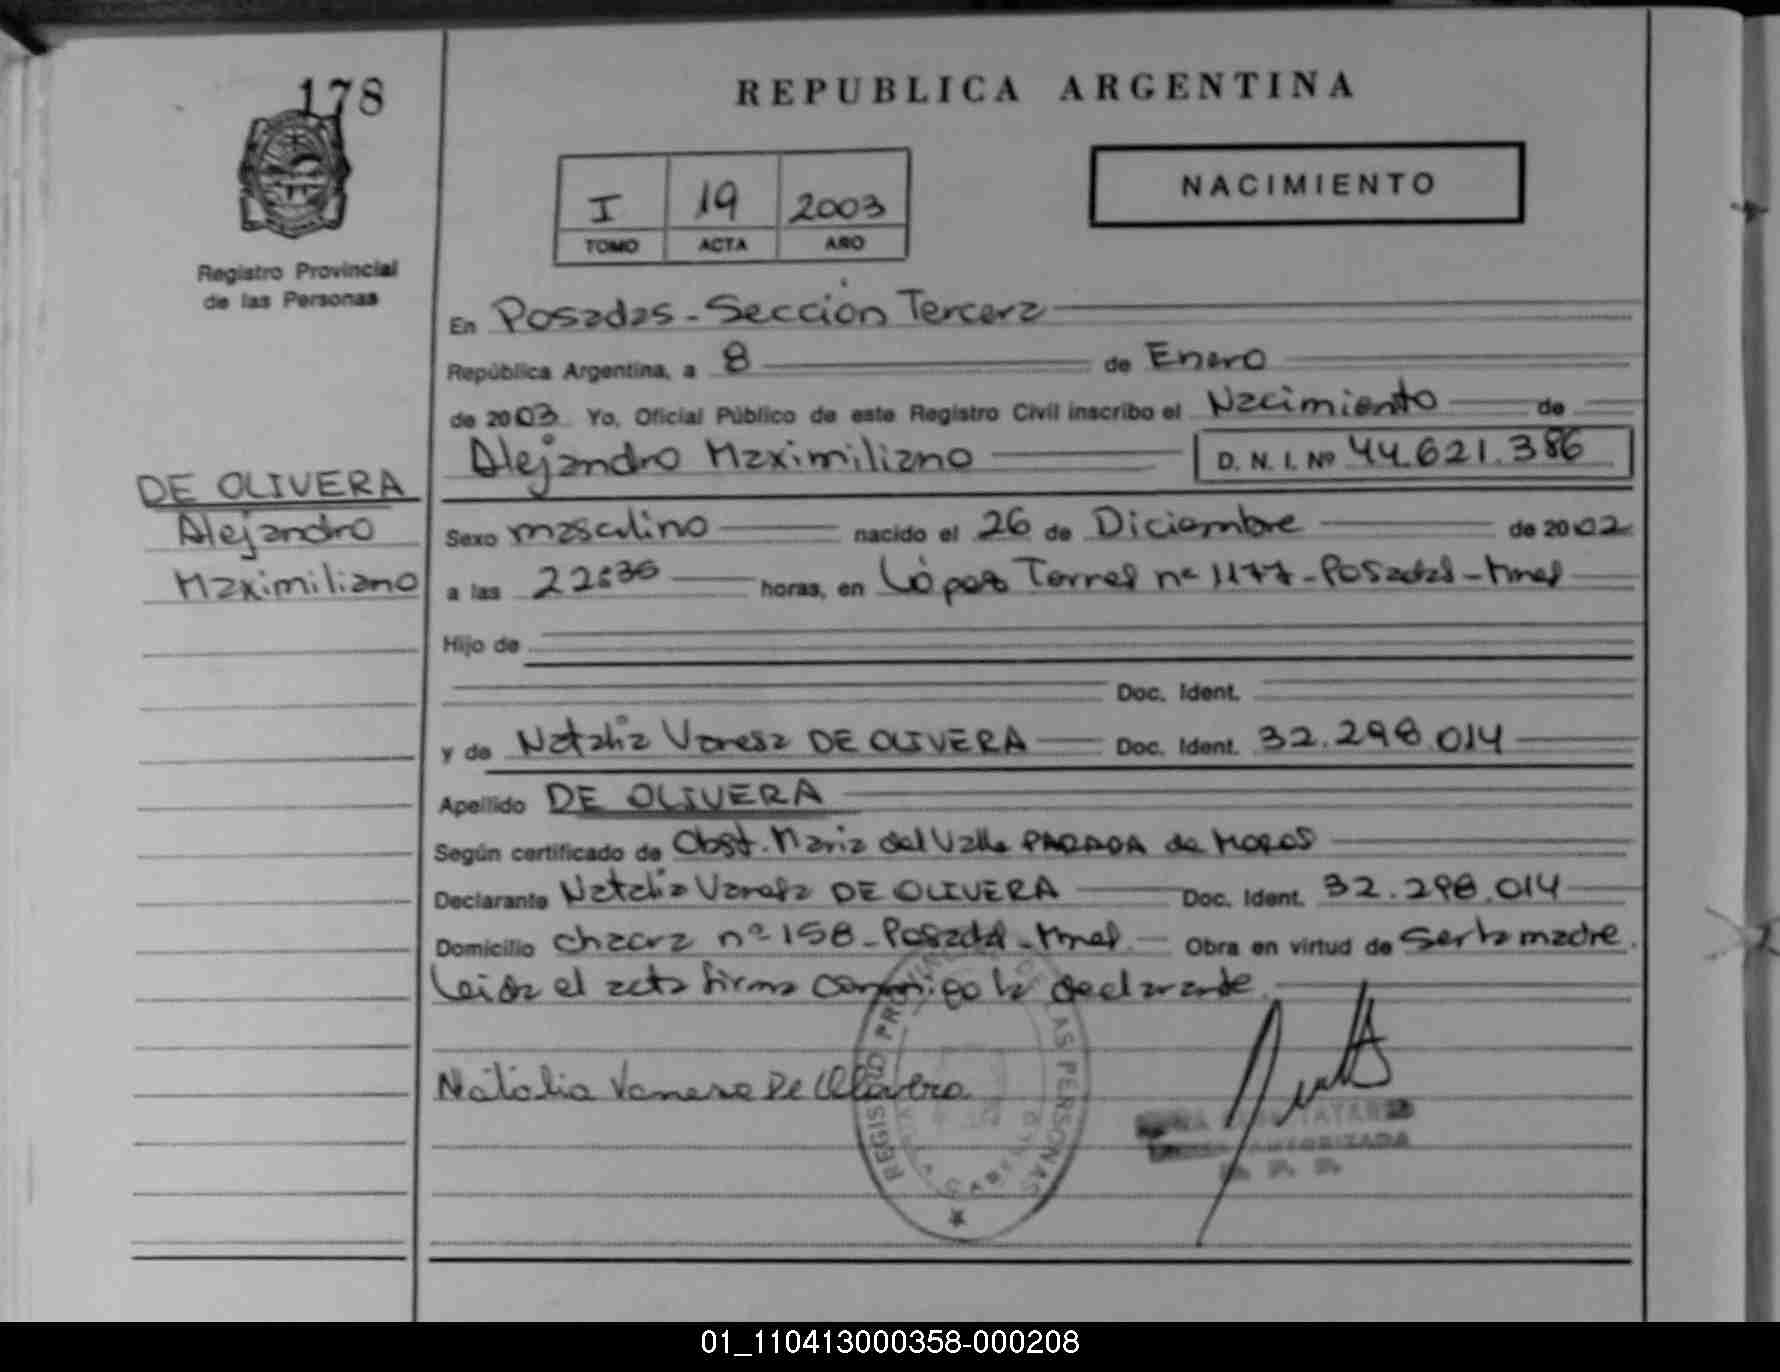 178
REPUBLICA ARGENTINA
I 19 2003
TOMO ACTA AÑO
NACIMIENTO
Registro Provincial
de las Personas
En Posadas - Sección Tercera
República Argentina, a 8 de Enero
de 2003 Yo, Oficial Público de este Registro Civil inscribo el Nacimiento de
Alejandro Maximiliano D. N. I. Nº 44.621.386
DE OLIVERA
Alejandro
Maximiliano
Sexo masculino nacido el 26 de Diciembre de 2002
a las horas, en López Torres nº 1177 - Posadas - Mnes
Hijo de
Doc. Ident.
y de Natalia Vanesa DE OLIVERA Doc. Ident. 32.298.014
Apellido DE OLIVERA
Según certificado de Obst. Maria del Valle PARADA de
Declarante Natalia Vanesa DE OLIVERA Doc. Ident. 32.298.014
Domicilio chacra nº 158 - Posadas - Mnes. Obra en virtud de ser la madre.
Leida el acta firma conmigo la declarante.
Natalia Vanesa De Olivera
REGISTRO PROVINCIAL DE LAS PERSONAS
AUTORIZADA
01_110413000358-000208